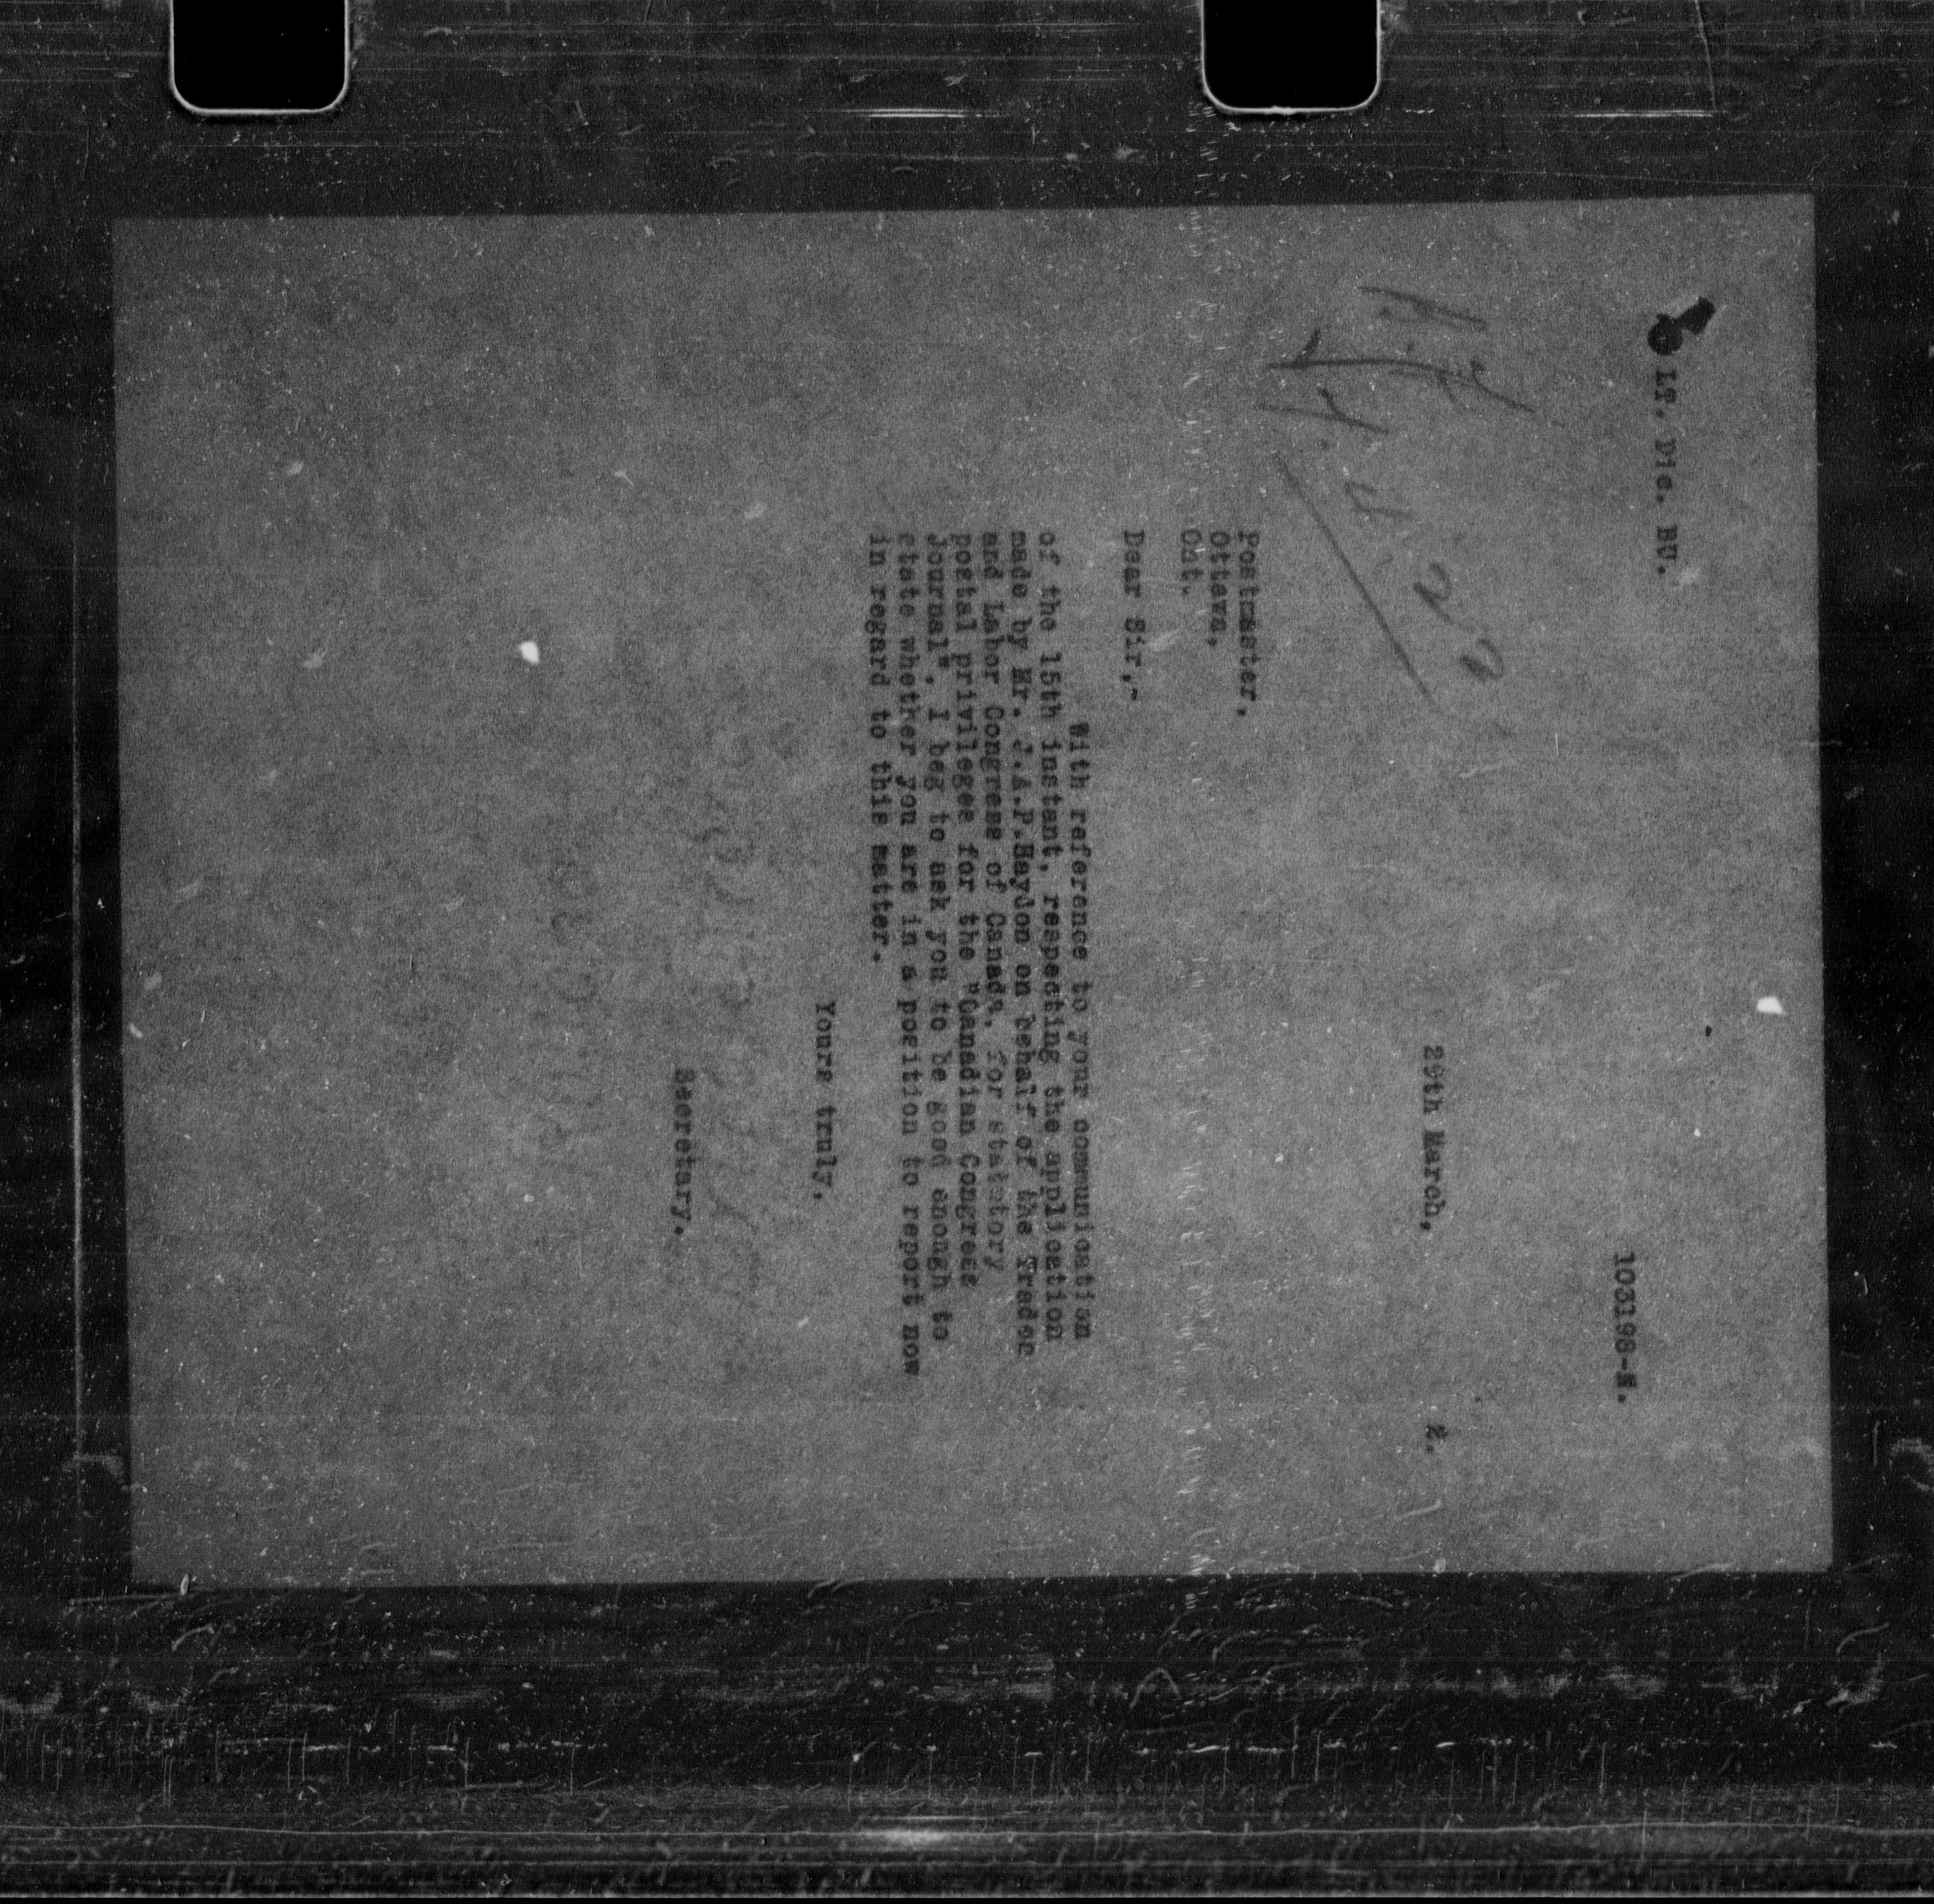 LT. Dic. BU.
103198-N.
29th March, 2.
Postmaster,
Ottawa,
Ont.
Dear Sir,-
With reference to your communication
of the 15th instant, respecting the application
made by Mr. J.A.P.Haydon on behalf of the Trades
and Labor Congress of Canada, for statutory
postal privileges for the "Canadian Congress
Journal", I beg to ask you to be good enough to
state whether you are in a position to report now
in regard to this matter.
Yours truly,
Secretary.